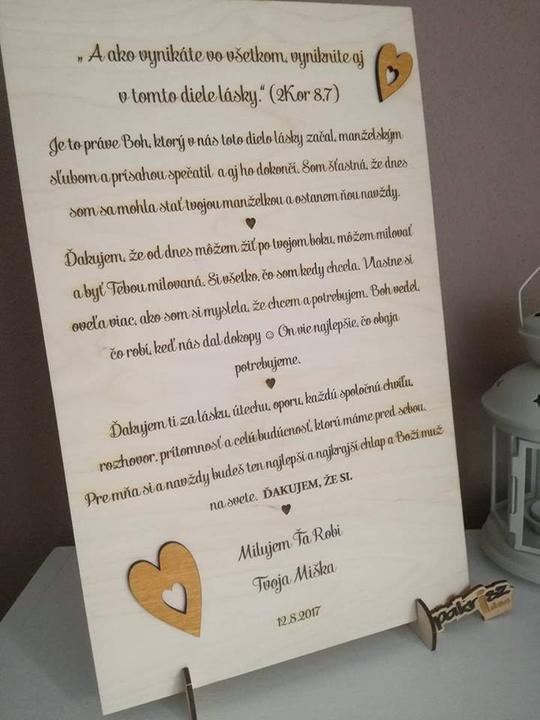 „A ako vynikáte vo všetkom, vyniknite aj
v tomto diele lásky." (2Kor 8,7)
Je to práve Boh, ktorý v nás toto dielo lásky začal, manželským
sľubom a prísahou spečatil a aj ho dokončí. Som šťastná, že dnes
som sa mohla stať tvojou manželkou a ostanem ňou navždy.
Ďakujem, že od dnes môžem žiť po tvojom boku, môžem milovať
a byť Tebou milovaná. Si všetko, čo som kedy chcela. Vlastne si
oveľa viac, ako som si myslela, že chcem a potrebujem. Boh vedel,
čo robí, keď nás dal dokopy ☺ On vie najlepšie, čo obaja
potrebujeme.
Ďakujem ti za lásku, útechu, oporu, každú spoločnú chvíľu,
rozhovor, prítomnosť a celú budúcnosť, ktorú máme pred sebou.
Pre mňa si a navždy budeš ten najlepší a najkrajší chlap a Boží muž
na svete. ĎAKUJEM, ŽE SI.
Milujem Ťa Robi
Tvoja Miška
12.8.2017